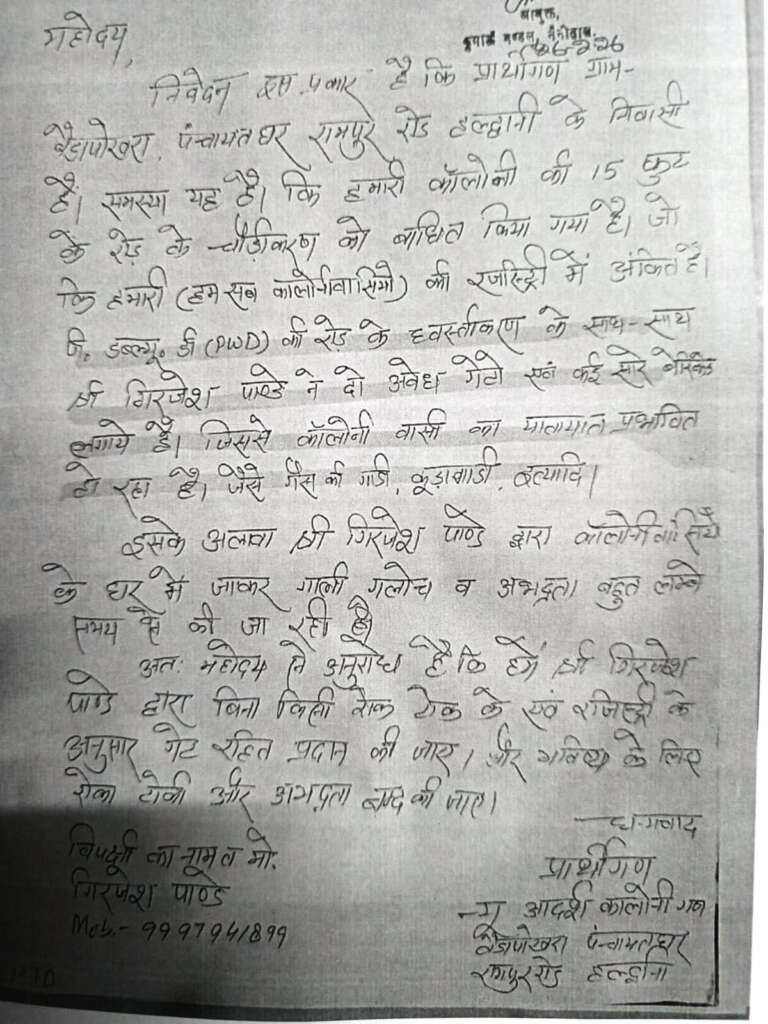 महोदय,
आयुक्त,
कुमाऊँ मण्डल, नैनीताल
निवेदन इस प्रकार है कि प्रार्थीगण ग्राम-
बैडापोखरा, पंचायतघर रामपुर रोड हल्द्वानी के निवासी
हैं। समस्या यह है। कि हमारी कॉलोनी की 15 फुट
के रोड़ के चौड़ीकरण को बाधित किया गया है। जो
कि हमारी (हम सब कालोनीवासियों) की रजिस्ट्री में अंकित है।
पि. डब्ल्यू. डी (PWD) की रोड़ के ध्वस्तीकरण के साथ-साथ
श्री गिरजेश पाण्डे ने दो अवैध गेटो एवं कई सारे
लगाये हैं। जिससे कॉलोनी वासी का यातायात प्रभावित
हो रहा है। जैसे गैस की गाडी, कूड़ागाडी, इत्यादि।
इसके अलावा श्री गिरजेश पाण्डे द्वारा कॉलोनीवासियों
के घर में जाकर गाली गलोच व अभद्रता बहुत लम्बे
समय से की जा रही है।
अतः महोदय से अनुरोध है कि हमें श्री गिरजेश
पाण्डे द्वारा बिना किसी रोक टोक के एवं रजिस्ट्री के
अनुसार गेट रहित प्रदान की जाए। और भविष्य के लिए
रोका टोकी और अभद्रता बन्द की जाए।
धन्यवाद
विपक्षी का नाम व मो.
गिरजेश पाण्डे
Mob.- 9997941899
प्रार्थीगण
आदर्श कालोनी
बैडापोखरा पंचायतघर
रामपुर रोड हल्द्वानी